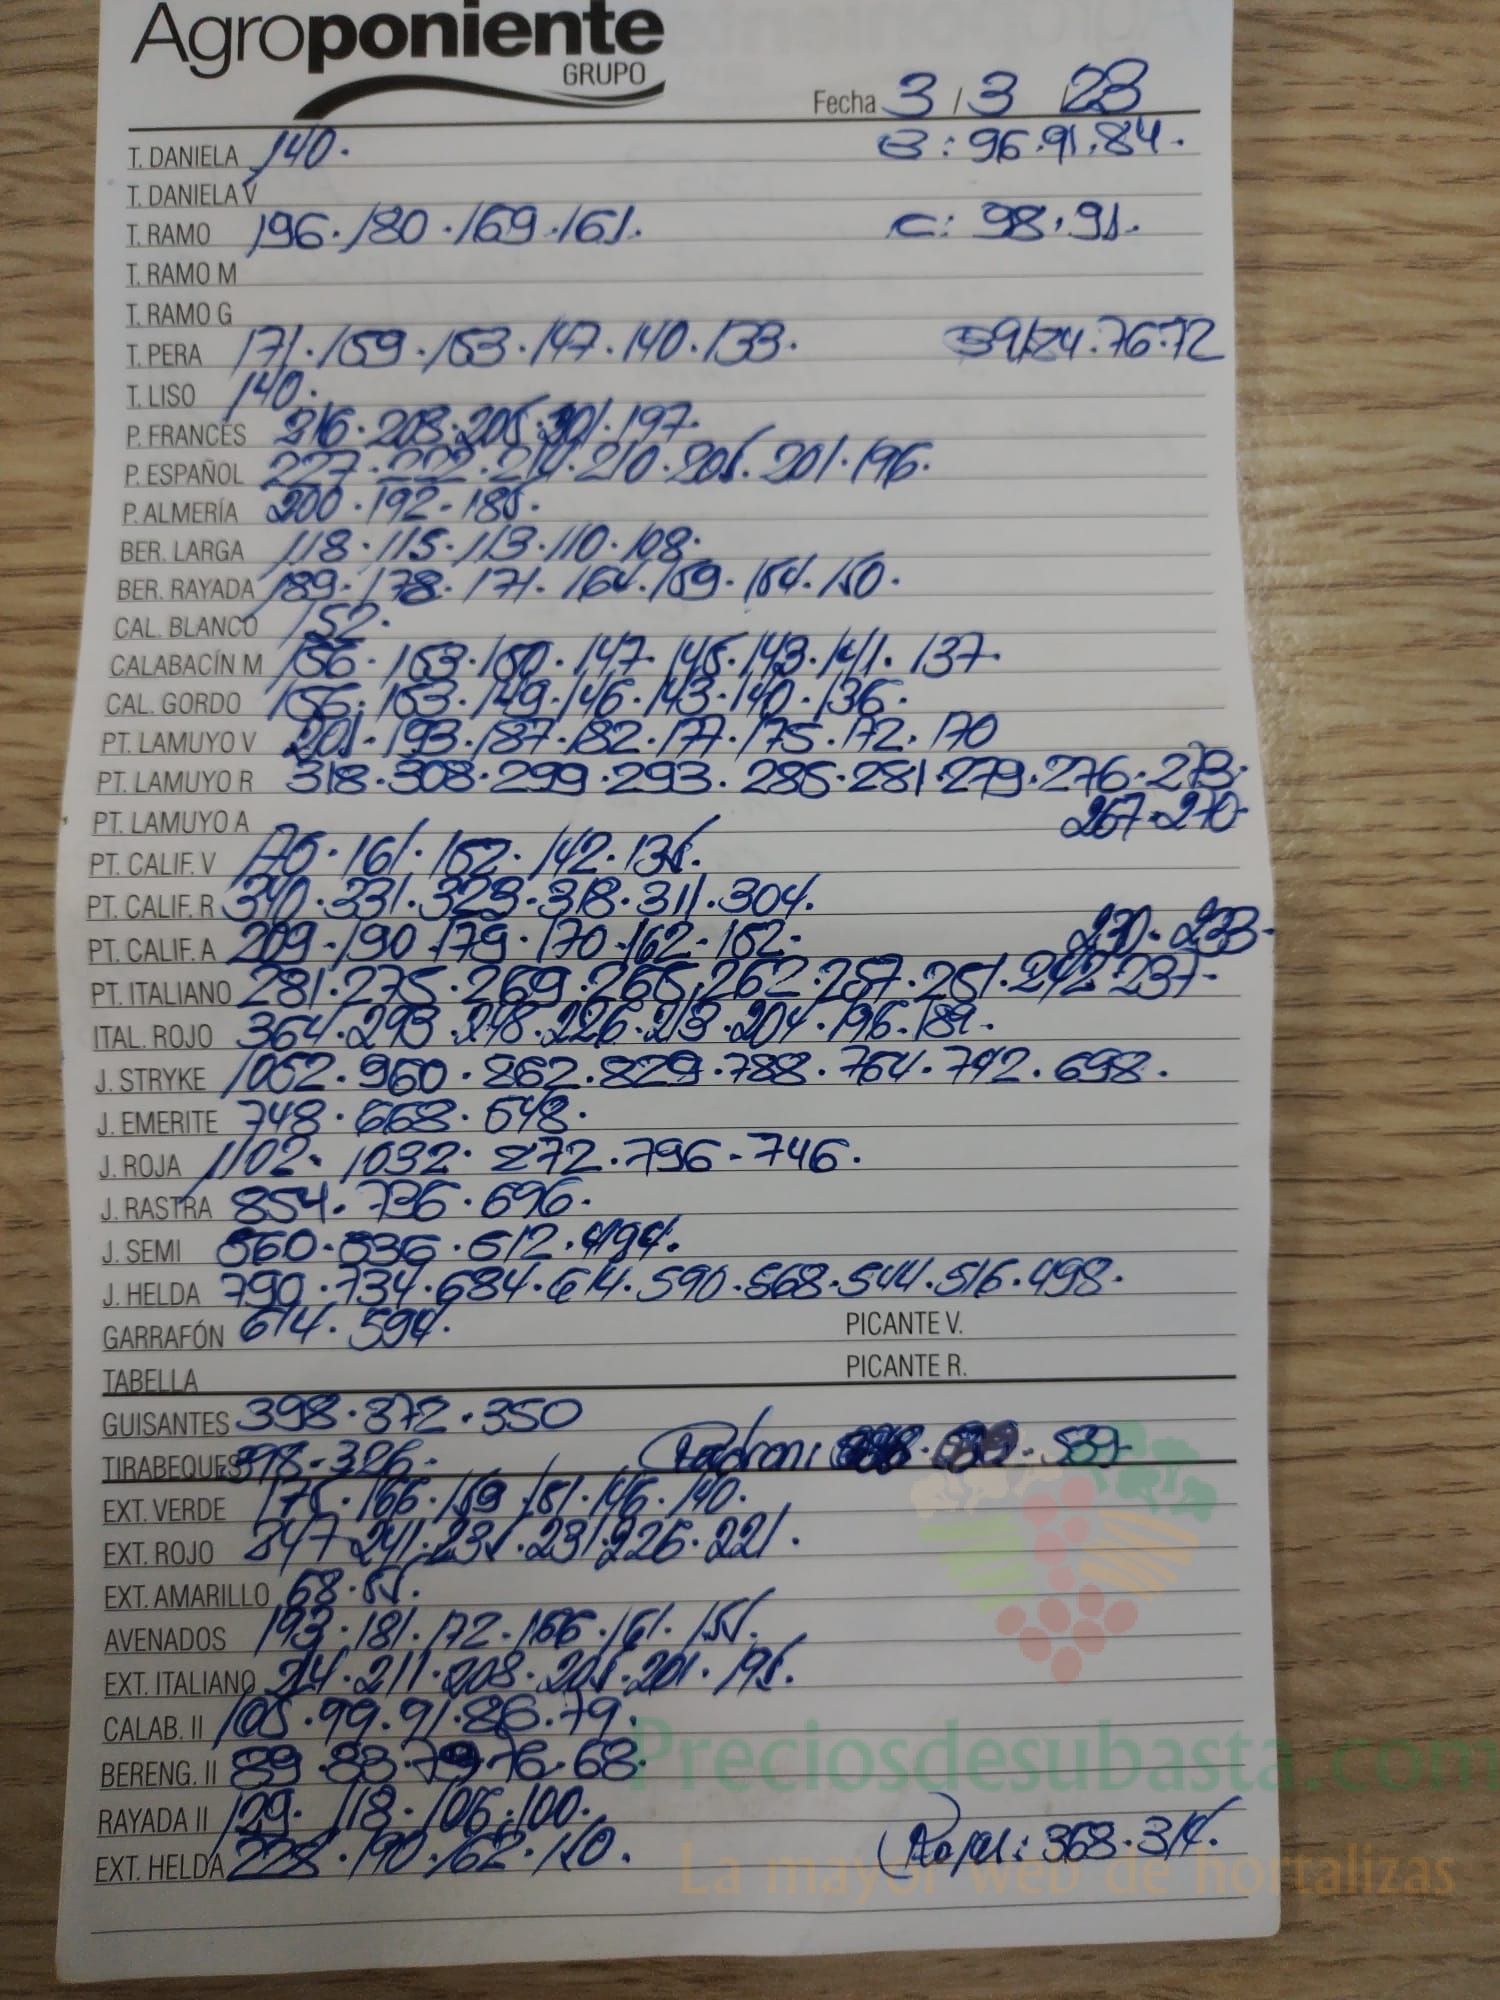 Agroponiente
GRUPO
Fecha 3/3/23
T. DANIELA 140. B: 96.91.84.
T. DANIELA V
T. RAMO 196.180.169.161. C: 98.91.
T. RAMO M
T. RAMO G
T. PERA 171.159.153.147.140.133. 84.76.72
T. LISO 140.
P. FRANCÉS 216.208.205.201.197.
P. ESPAÑOL 227.222.214.210.205.201.196.
P. ALMERÍA 200.192.185.
BER. LARGA 118.115.113.110.108.
BER. RAYADA 189.178.171.164.159.154.150.
CAL. BLANCO 152.
CALABACÍN M 156.153.150.147.145.143.141.137.
CAL. GORDO 156.153.149.146.143.140.136.
PT. LAMUYO V 201.193.187.182.177.175.172.170
PT. LAMUYO R 318.308.299.293.285.281.279.276.273.
PT. LAMUYO A 267.270.
PT. CALIF. V 170.161.152.142.135.
PT. CALIF. R 340.331.323.318.311.304.
PT. CALIF. A 209.190.179.170.162.152. 230.233.
PT. ITALIANO 281.275.269.265.262.257.251.242.237.
ITAL. ROJO 364.293.248.226.213.204.196.189.
J. STRYKE 1052.960.862.829.788.764.742.698.
J. EMERITE 748.668.548.
J. ROJA 1102.1032.872.796.746.
J. RASTRA 854.736.696.
J. SEMI 560.536.512.494.
J. HELDA 790.734.684.614.590.568.544.516.498.
GARRAFÓN 614.594. PICANTE V.
TABELLA PICANTE R.
GUISANTES 398.372.350
TIRABEQUES 398.326. Padron: 539.
EXT. VERDE 175.166.159.151.146.140.
EXT. ROJO 241.235.231.226.221.
EXT. AMARILLO 68.55.
AVENADOS 193.181.172.166.161.155.
EXT. ITALIANO 214.211.208.205.201.195.
CALAB. II 105.99.91.86.79.
BERENG. II 89.83.79.76.68.
RAYADA II 129.118.106.100.
EXT. HELDA 228.190.162.150. 368.314.
Preciosdesubasta.com
La mayor web de hortalizas